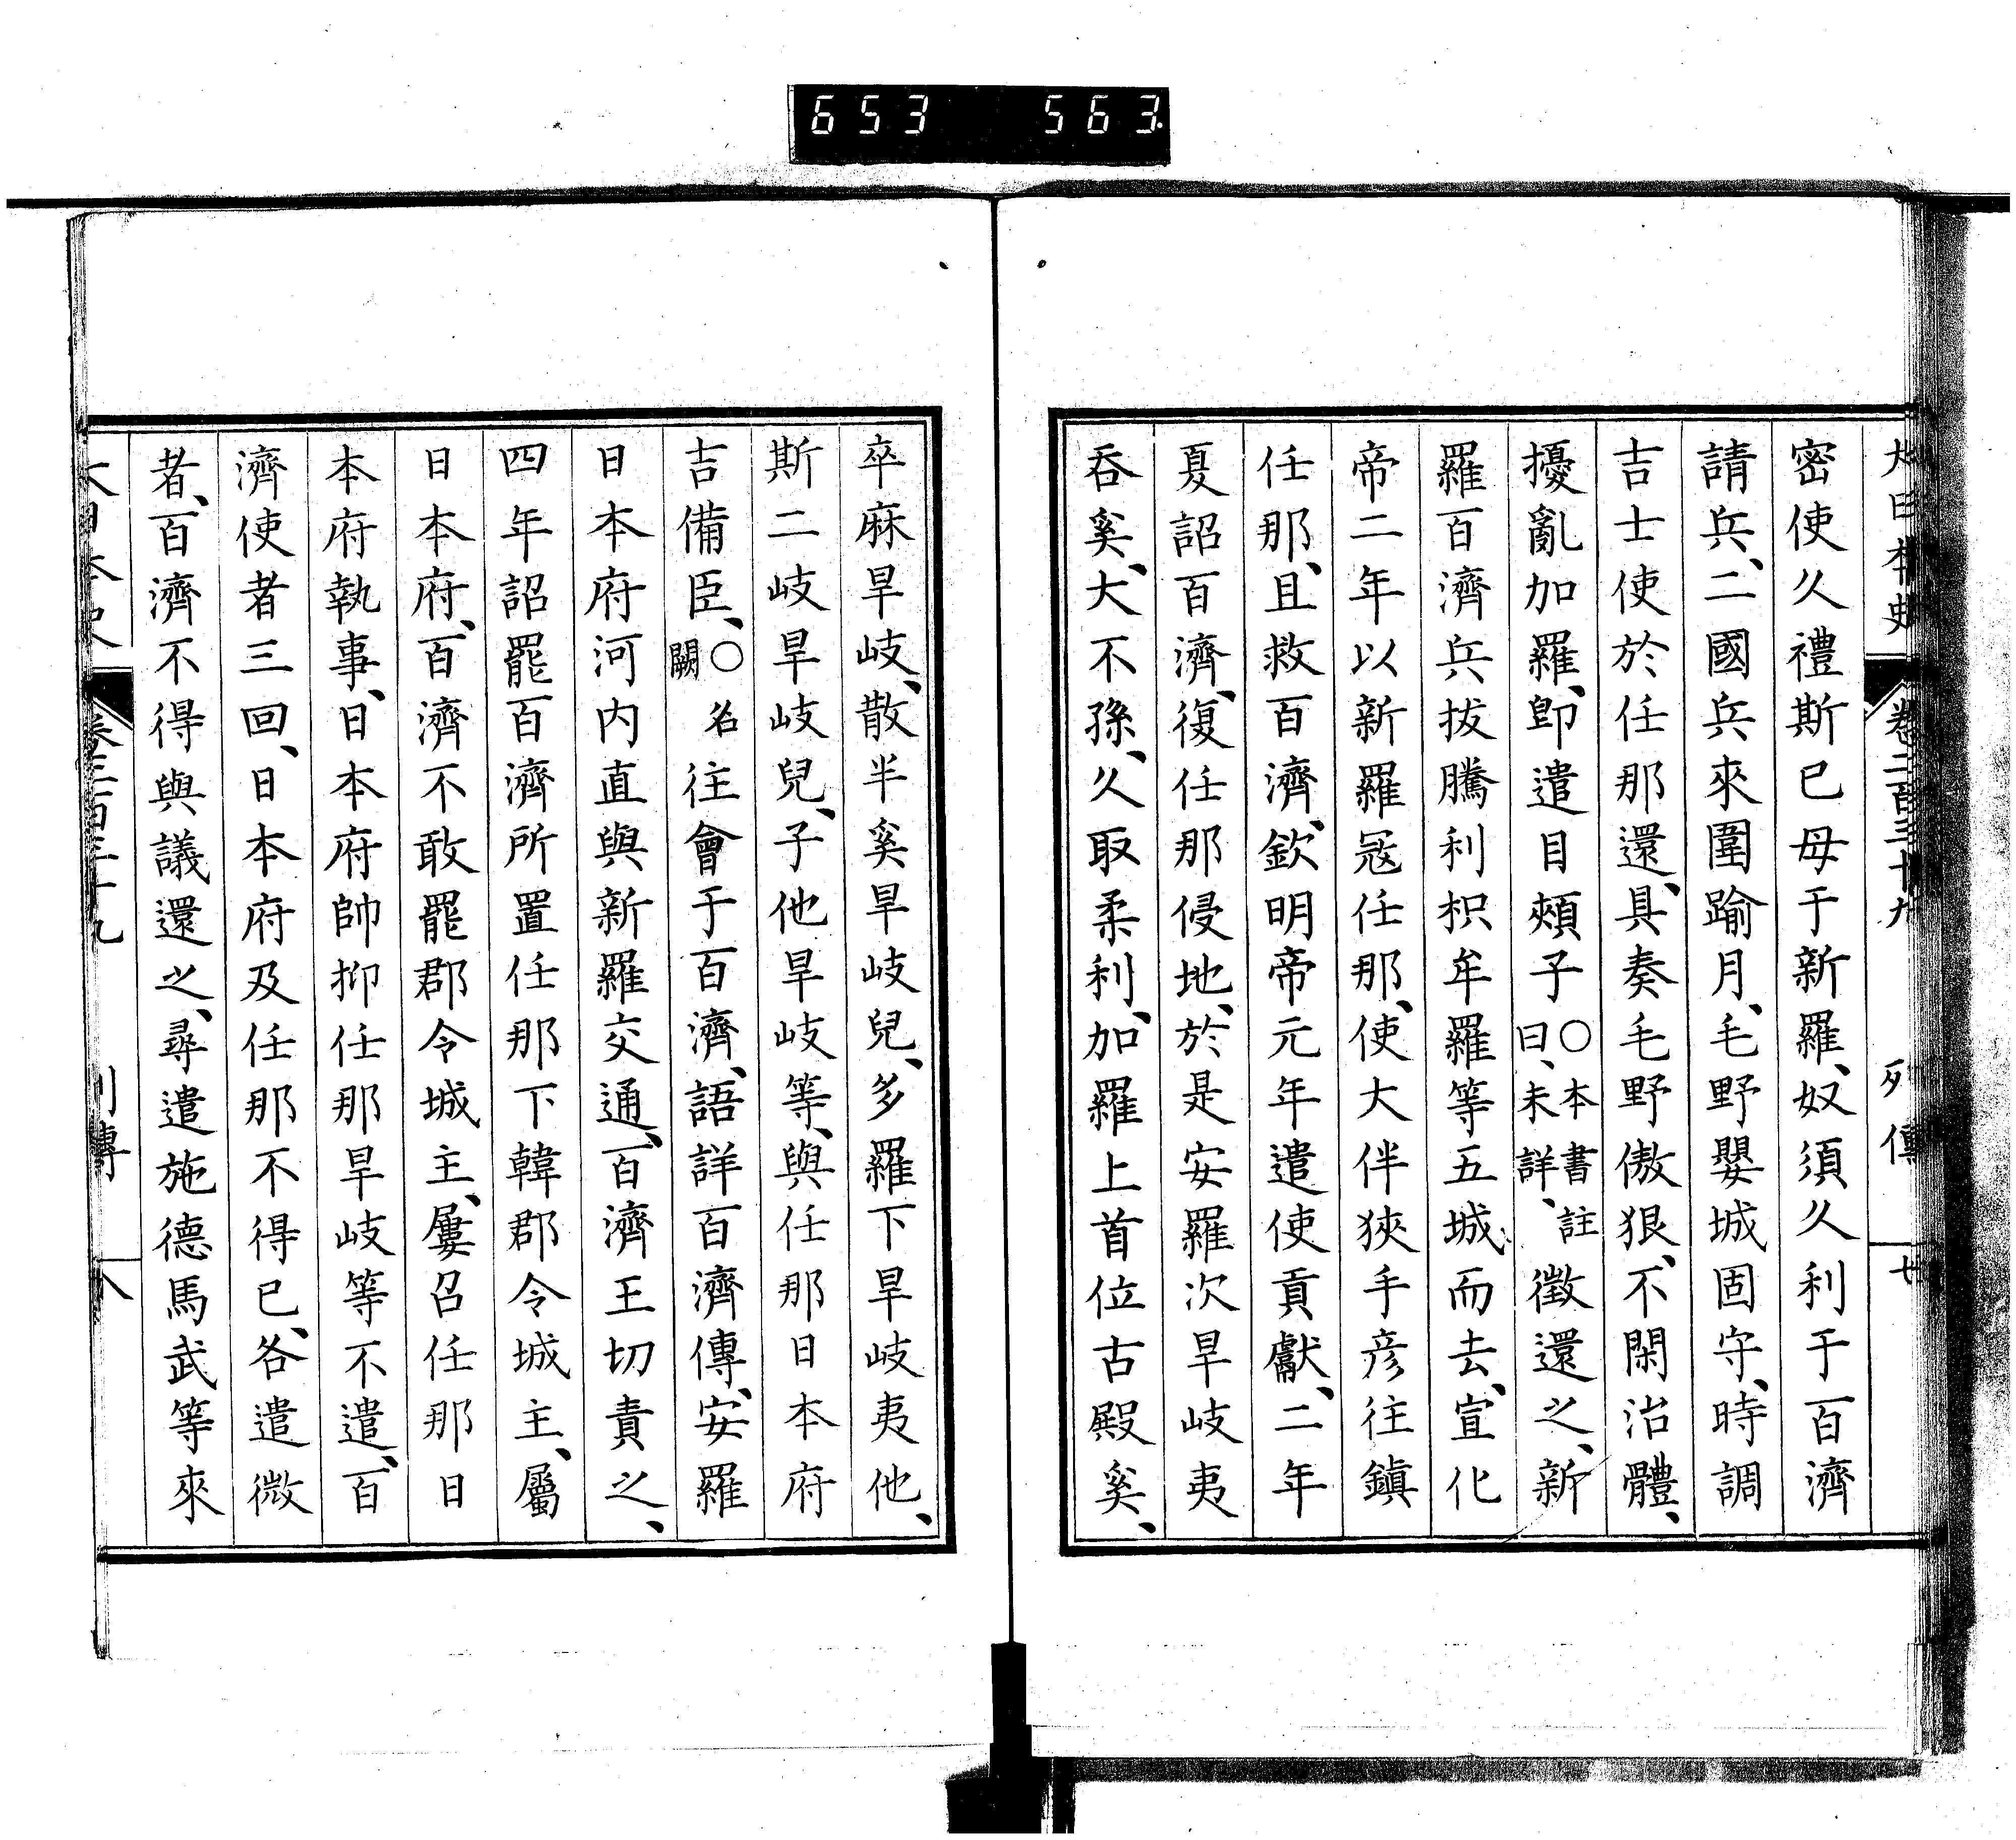 653 563
大日本史 卷二百三十九 列傳 七
密使久禮斯已母于新羅、奴須久利于百濟
請兵、二國兵來圍踰月、毛野嬰城固守、時調
吉士使於任那還、具奏毛野傲狠、不閑治體、
擾亂加羅、卽遣目頰子○本書註曰、未詳、徵還之、新
羅百濟兵拔騰利枳牟羅等五城、而去、宣化
帝二年以新羅寇任那、使大伴狹手彦往鎭
任那、且救百濟、欽明帝元年遣使貢獻、二年
夏詔百濟、復任那侵地、於是安羅次旱岐夷
吞奚、大不孫、久取柔利、加羅上首位古殿奚、
卒麻旱岐、散半奚旱岐兒、多羅下旱岐夷他、
斯二岐旱岐兒、子他旱岐等、與任那日本府
吉備臣、○名闕往會于百濟、語詳百濟傳、安羅
日本府河内直與新羅交通、百濟王切責之、
四年詔罷百濟所置任那下韓郡令城主、屬
日本府、百濟不敢罷郡令城主、屢召任那日
本府執事、日本府帥抑任那旱岐等不遣、百
濟使者三回、日本府及任那不得已、各遣微
者、百濟不得與議還之、尋遣施德馬武等來
大日本史 卷二百三十九 列傳 八